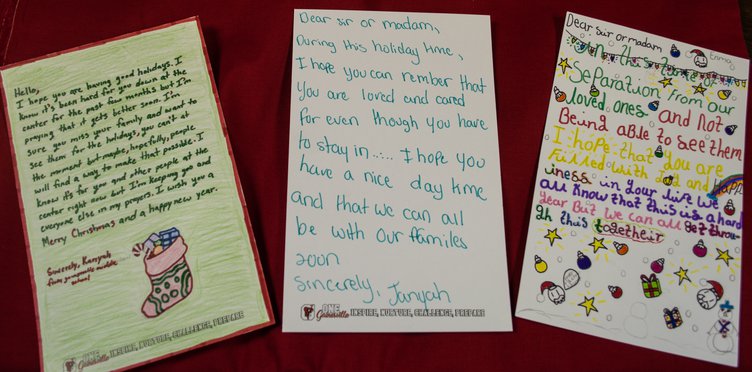 Hello,
I hope you are having good holidays. I
know it's been hard for you down at the
center for the past few months but I'm
praying that it gets better soon. I'm
sure you miss your family and want to
see them for the holidays, you can't at
the moment but maybe, hopefully, people
will find a way to make that possible. I
know it's for you and other people at the
center right now but I'm keeping you and
everyone else in my prayers. I wish you a
Merry Christmas and a happy new year.
Sincerely,
middle
school
ONE
Gainesville INSPIRE, NURTURE, CHALLENGE, PREPARE
Dear sir or madam,
During this holiday time,
I hope you can rember that
you are loved and cared
for even though you have
to stay in..... I hope you
have a nice day time
and that we can all
be with our familes
soon
Sincerely, Janyah
ONE
Gainesville INSPIRE, NURTURE, CHALLENGE, PREPARE
Dear sir or madam
separation from our
loved ones and not
Being able to see them
I hope that you are
Filled with and happ
iness in your life We
all Know that this is a hard
year But we can all get throu-
gh this together